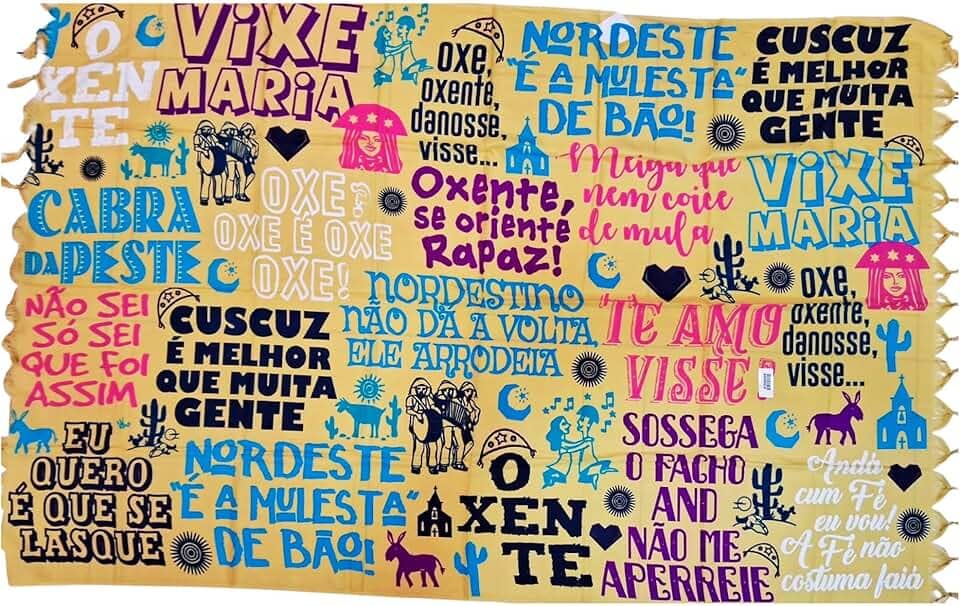 O
XEN
TE
ViXE
MARiA
OXE,
oxente,
danosse,
visse...
NORDESTE
"É A MULESTA"
DE BÃO!
CUSCUZ
É MELHOR
QUE MUITA
GENTE
CABRA
DA PESTE
OXE
OXE É OXE
OXE!
Oxente,
se oriente
Rapaz!
Meiga que
nem coice
de mula
ViXE
MARiA
NÃO SEI
SÓ SEI
QUE FOI
ASSIM
CUSCUZ
É MELHOR
QUE MUITA
GENTE
NORDESTINO
NÃO DÁ A VOLTA,
ELE ARRODEIA
TE AMO
VISSE!
OXE,
oxente,
danosse,
visse...
EU
QUERO
É QUE SE
LASQUE
NORDESTE
"É A MULESTA"
DE BÃO!
O
XEN
TE
SOSSEGA
O FACHO
AND
NÃO ME
APERREIE
Andá
cum Fé
eu vou!
A Fé não
costuma faiá